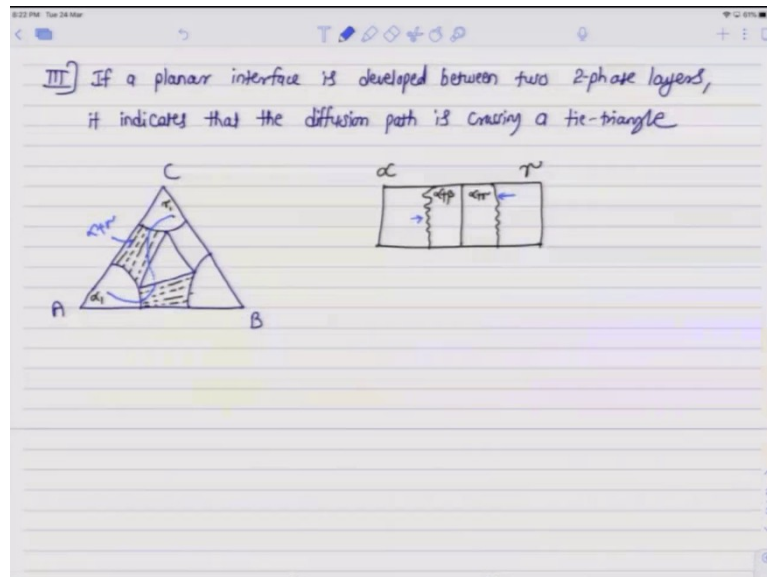 8:22 PM Tue 24 Mar
61%
III] If a planar interface is developed between two 2-phase layers,
it indicates that the diffusion path is crossing a tie-triangle
C
α+γ
γ₁
α₁
A
B
α
γ
α+β
α+γ